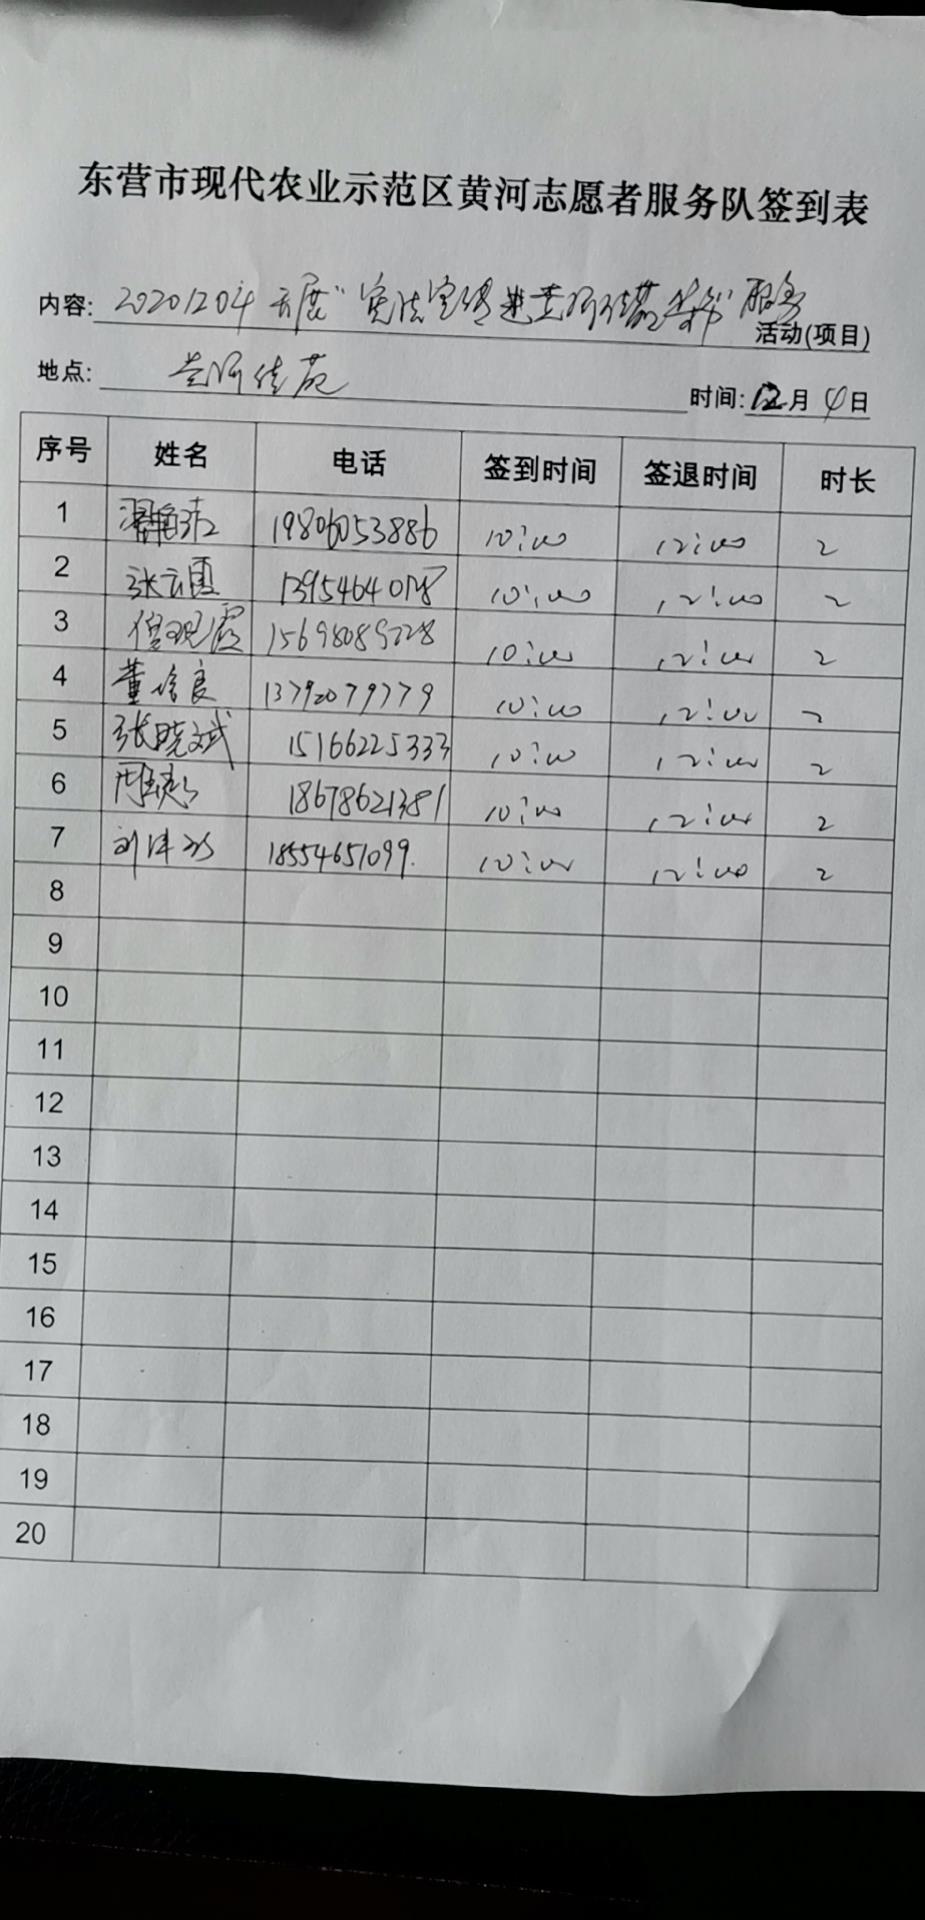 东营市现代农业示范区黄河志愿者服务队签到表
内容: 20201204 开展“宪法宣传进黄河佳苑 服务
活动(项目)
地点: 黄河佳苑 时间: 12月4日
序号 姓名 电话 签到时间 签退时间 时长
1 19806053886 10:00 12:00 2
2 张云霞 1395464 10:00 12:00 2
3 10:00 12:00 2
4 董培良 13792079779 10:00 12:00 2
5 张晓斌 15166225333 10:00 12:00 2
6 18678621381 10:00 12:00 2
7 刘 18554651099. 10:00 12:00 2
8
9
10
11
12
13
14
15
16
17
18
19
20